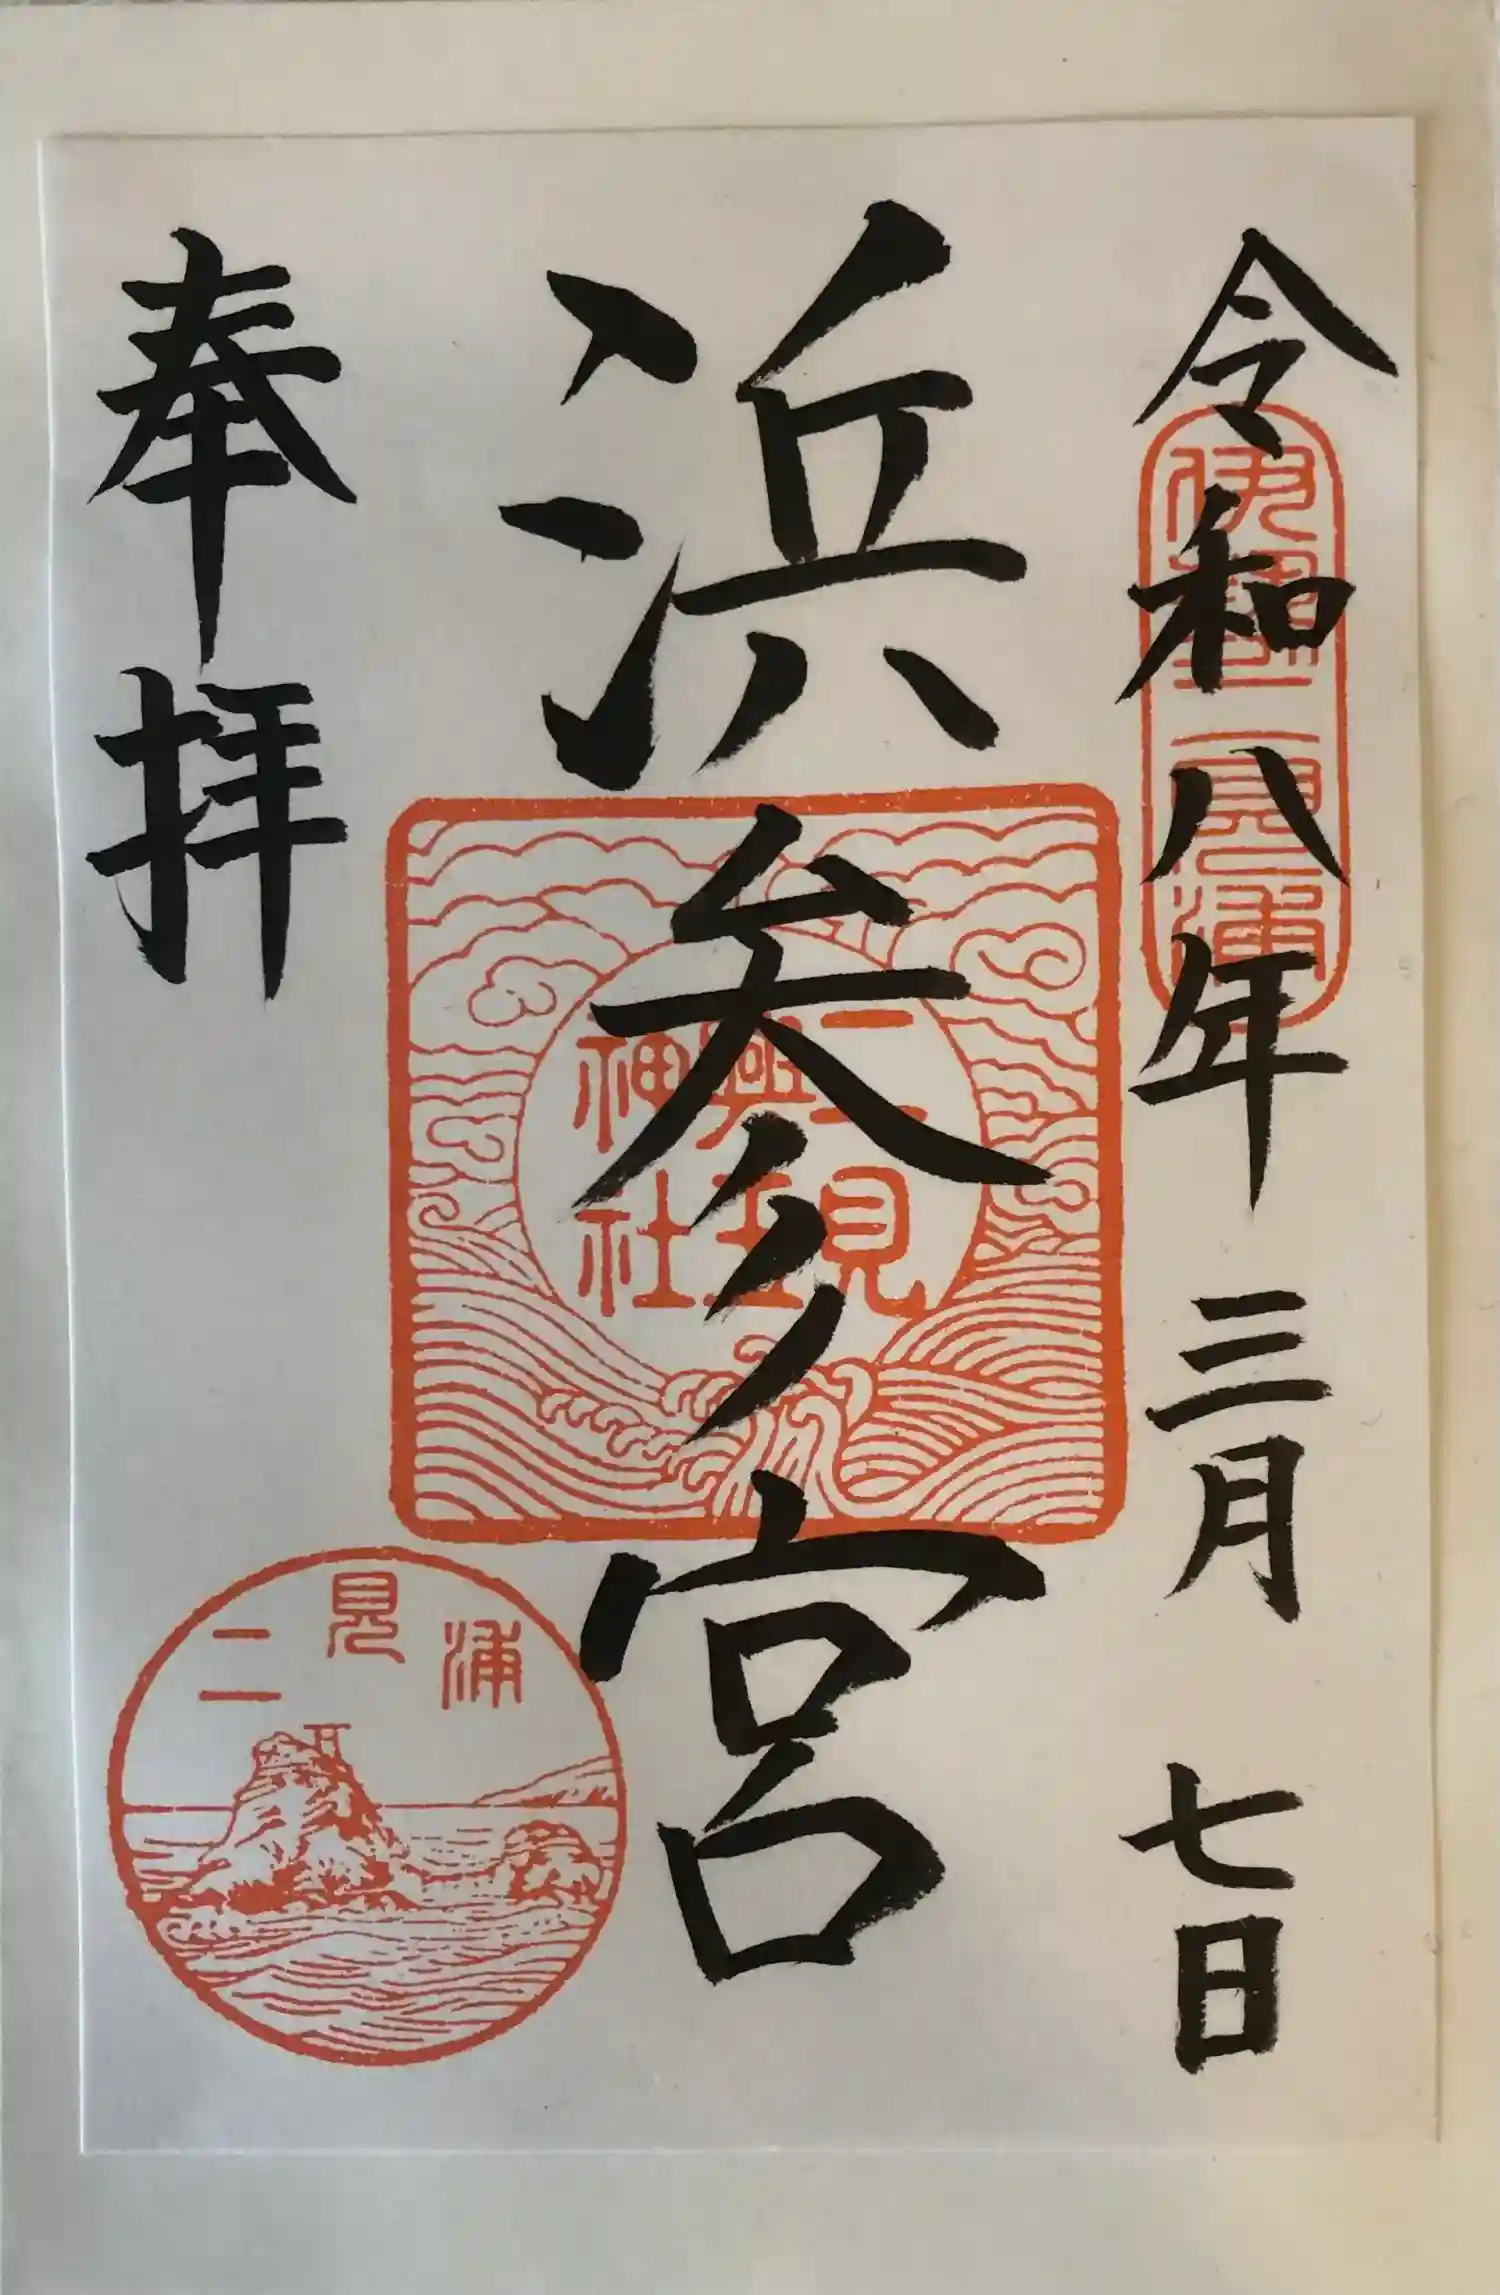 令和八年三月七日
伊勢二見浦
浜参宮
二見興玉神社
奉拝
二見浦